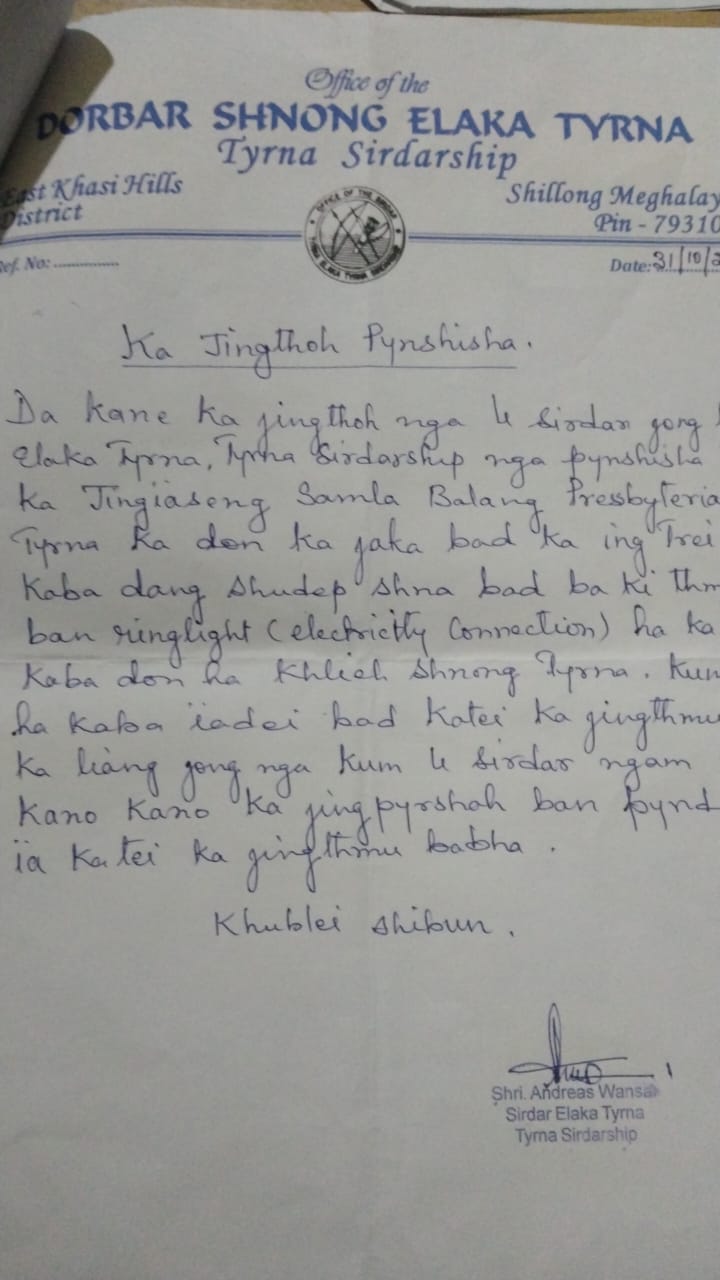 Office of the
DORBAR SHNONG ELAKA TYRNA
Tyrna Sirdarship
East Khasi Hills
District
Shillong Meghalay
Pin - 79310
OFFICE OF THE SIRDAR
TYRNA ELAKA TYRNA SIRDARSHIP
Ref. No: ...............
Date: 31/10/2
Ka Jingthoh Pynshisha.
Da kane ka jingthoh nga u Sirdar jong
Elaka Tyrna, Tyrna Sirdarship nga pynshisha
ka Jingiaseng Samla Balang Presbyteria
Tyrna ka don ka jaka bad ka ing Trei
Kaba dang shudep shna bad ba ki thm
ban ringlight (electrictly Connection) ha ka
kaba don ha Khlieh Shnong Tyrna. Kum
ha kaba ïadei bad katei ka jingthmu
ka liang jong nga kum u Sirdar ngam
kano kano ka jingpyrshah ban pynd
ïa katei ka jingthmu babha.
Khublei shibun.
Shri. Andreas Wansai
Sirdar Elaka Tyrna
Tyrna Sirdarship